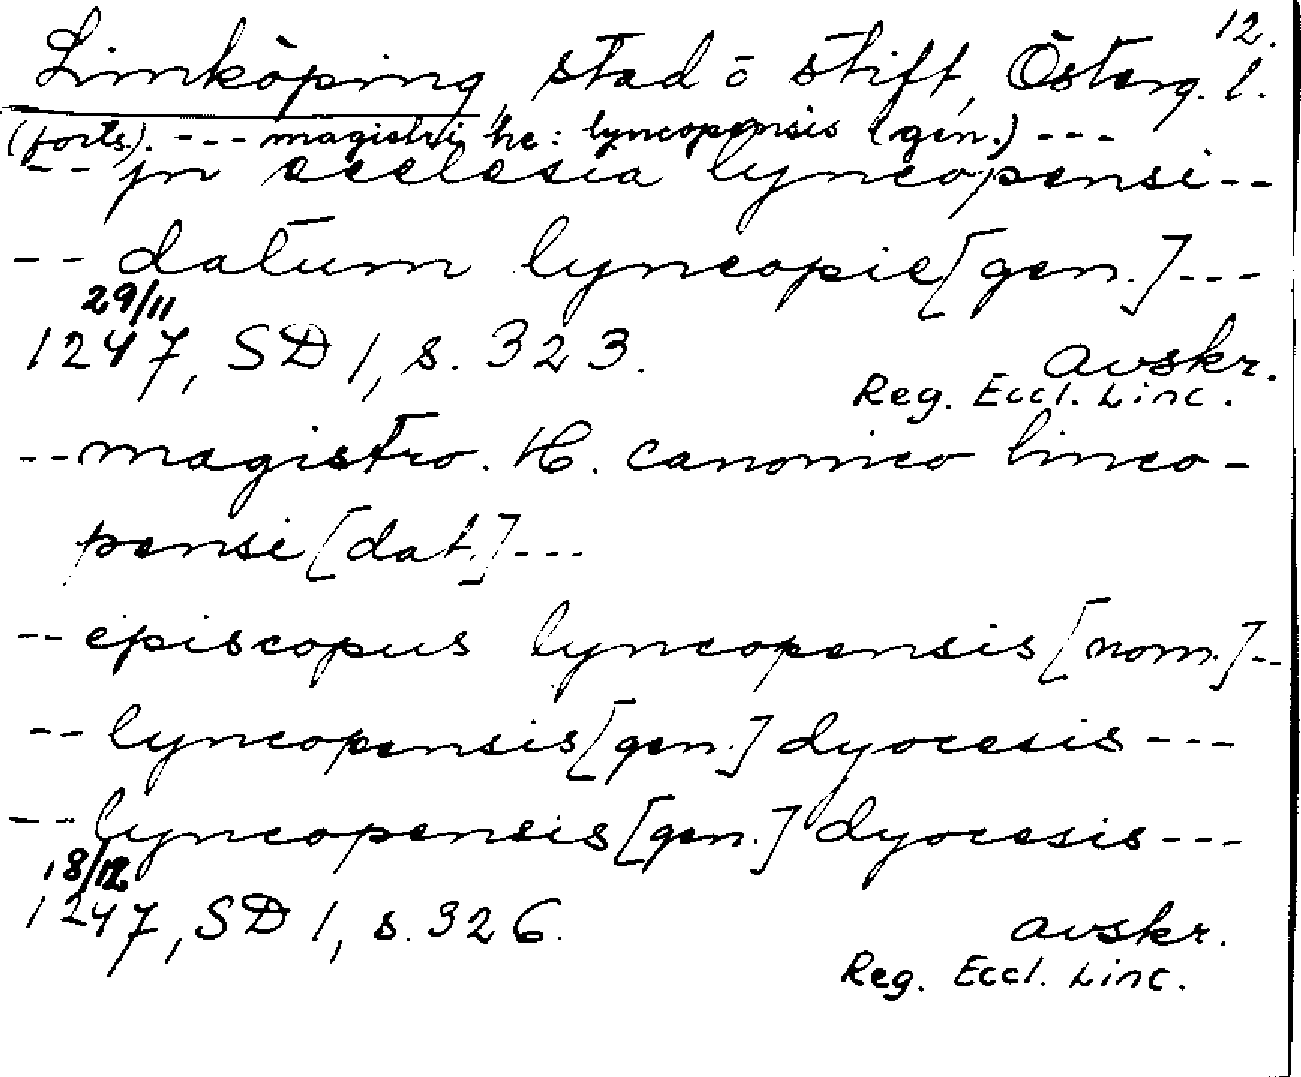 12.
Linköping stad o stift, Österg. l.
(forts). --- magistri hc: lyncopensis (gen.) ---
-- jn ecclesia lyncopensi --
-- datum lyncopie [gen.] ---
29/11
1247, SD 1, s. 323. avskr.
Reg. Eccl. Linc.
-- magistro. H. canonico linco-
pensi [dat.] ---
-- episcopus lyncopensis [nom.] --
-- lyncopensis [gen.] dyocesis ---
-- lyncopensis [gen.] dyocesis ---
18/12
1247, SD 1, s. 326. avskr.
Reg. Eccl. Linc.